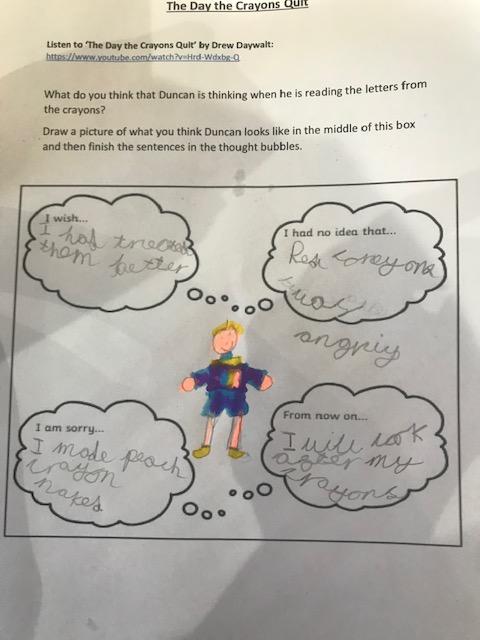 The Day the Crayons Quit
Listen to 'The Day the Crayons Quit' by Drew Daywalt:
https://www.youtube.com/watch?v=Hrd-Wdxbg-Q
What do you think that Duncan is thinking when he is reading the letters from
the crayons?
Draw a picture of what you think Duncan looks like in the middle of this box
and then finish the sentences in the thought bubbles.
I wish...
I had
them better
I had no idea that...
Red
angriy
I am sorry...
I made peach
crayon
naked
From now on...
I will look
after my
crayons